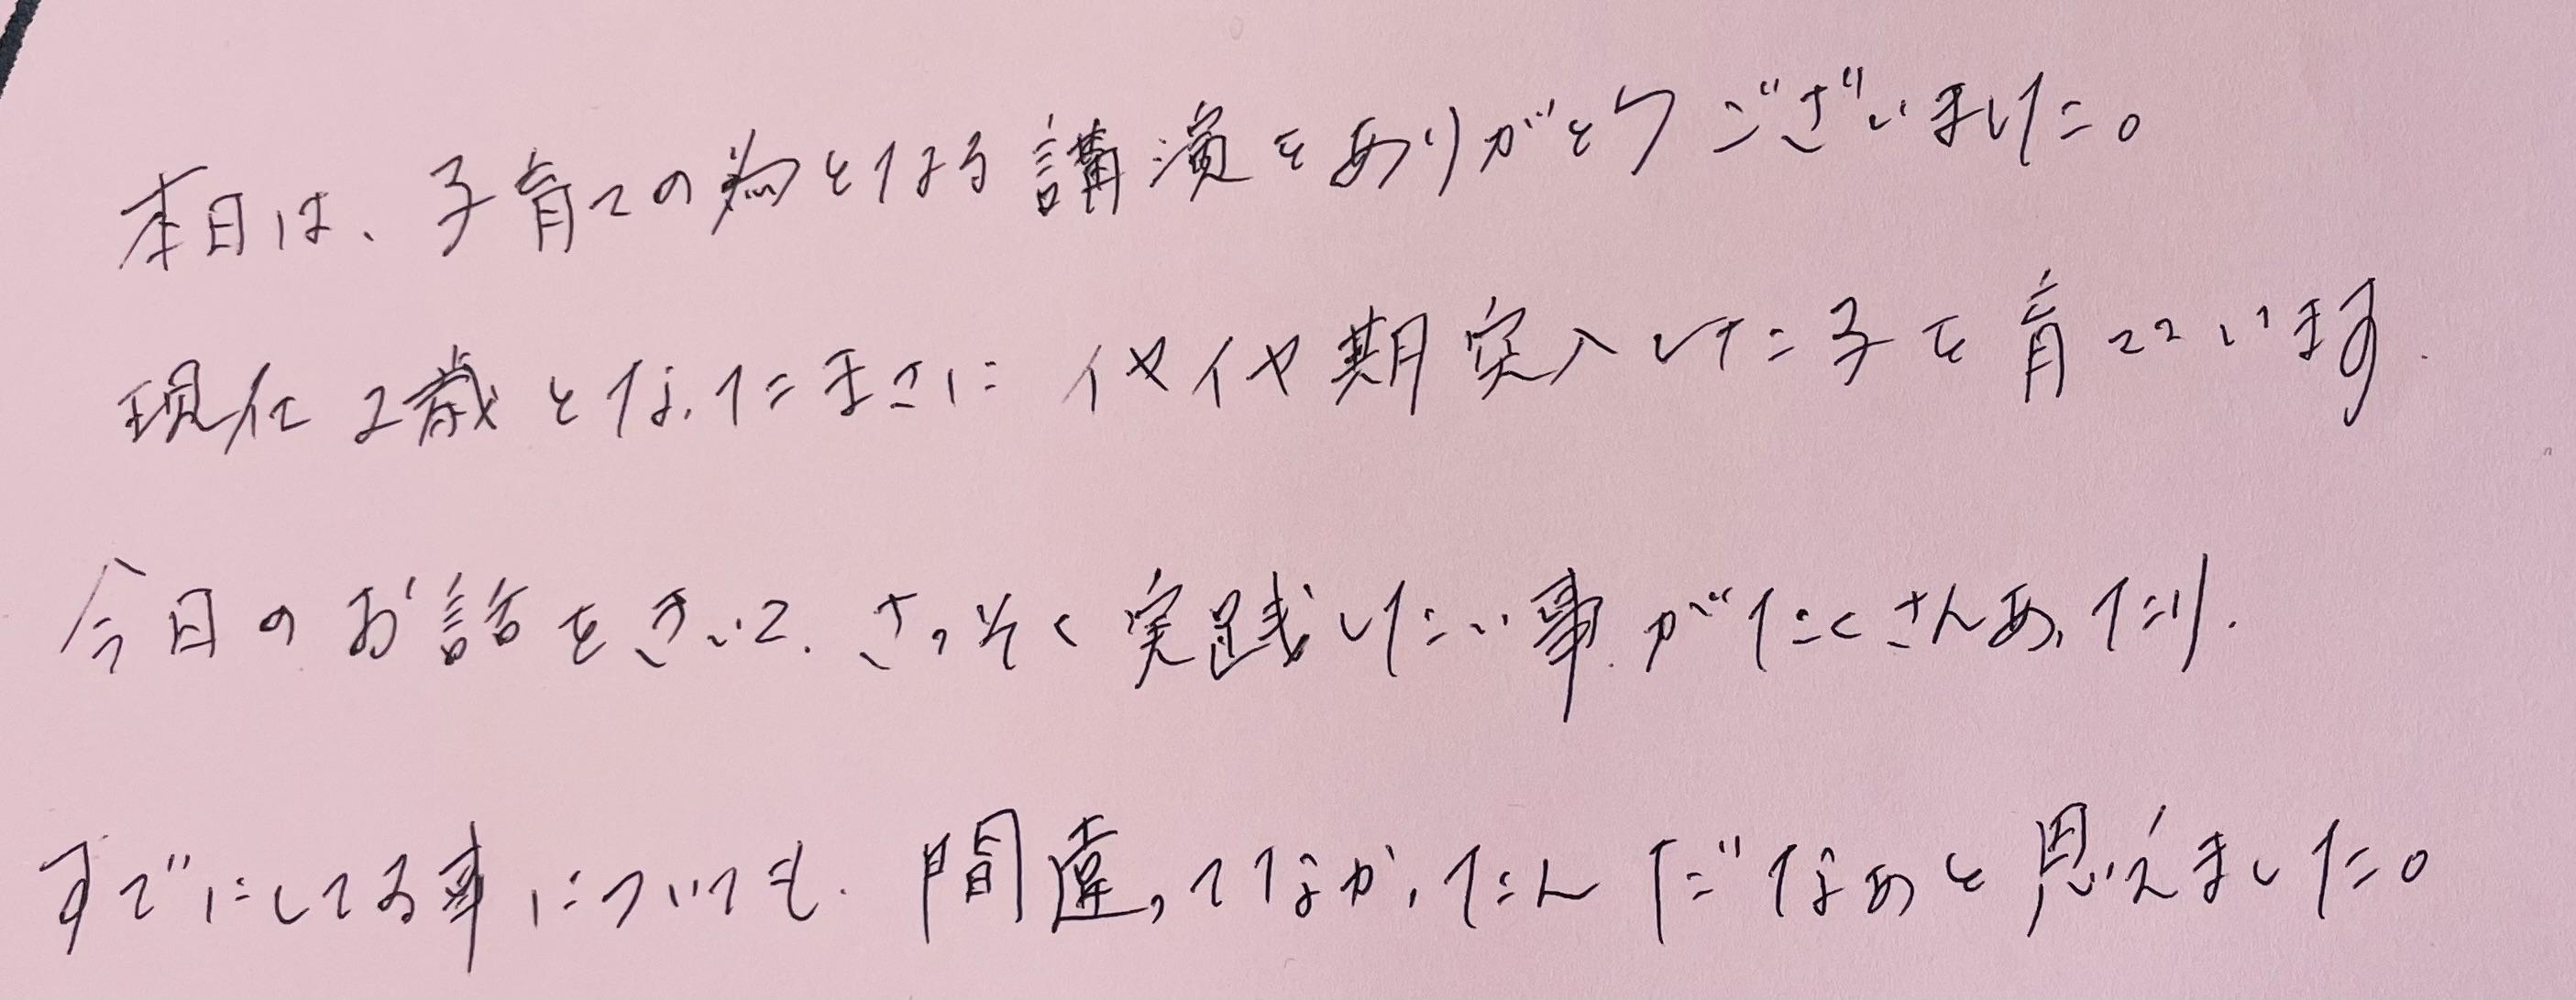 本日は、子育ての為となる講演をありがとうございました。
現在2歳となったまさにイヤイヤ期突入した子を育てています.
今日のお話をきいて、さっそく実践したい事がたくさんあったり、
すでにしてる事についても、間違ってなかったんだなぁと思えました。